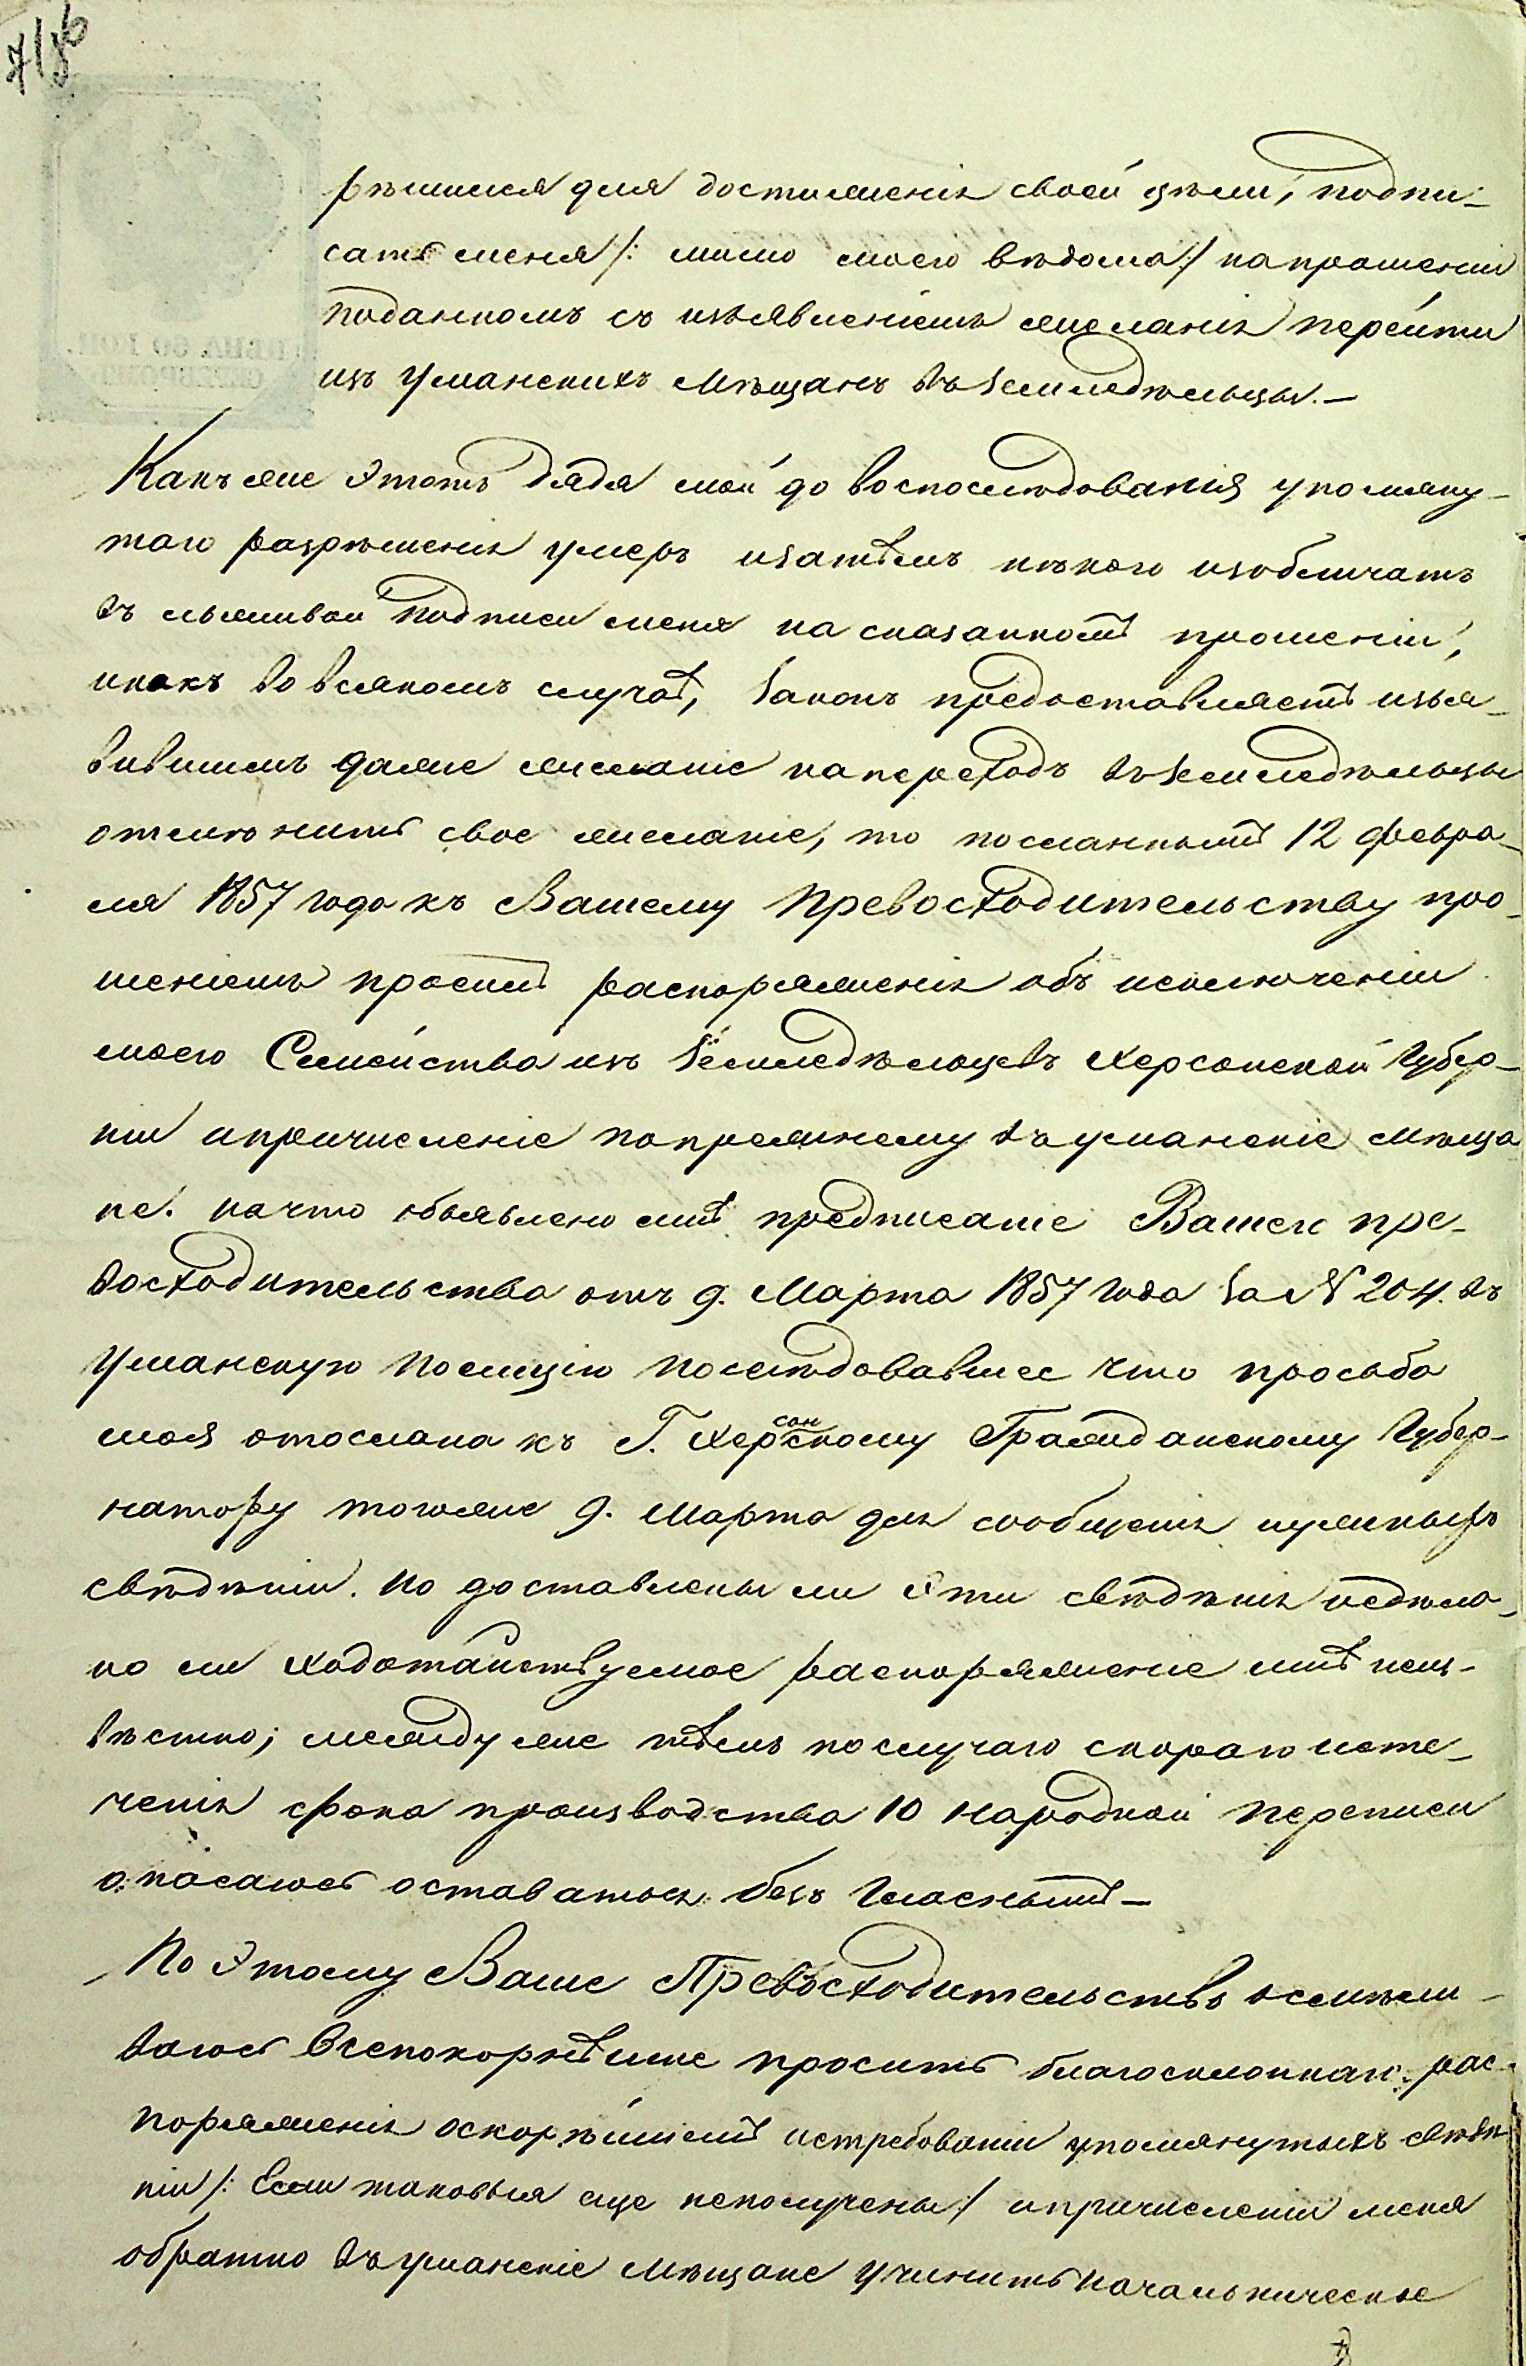 рѣшился для достиженія своей цѣли, подпи-
сать меня /: мимо моего вѣдома :/ на прошеніи
поданномъ съ изъявленіемъ желанія перейти
изъ Уманскихъ Мѣщанъ въ Земледѣльцы. —
Какъ же этотъ дядя мой до воспослѣдованія упомяну-
таго разрѣшенія умеръ и затѣмъ нѣкого изобличать
въ лживой подписи меня на сказанномъ прошеніи,
и какъ во всякомъ случаѣ, законъ предоставляетъ изъя-
вившимъ даже желаніе на переходъ въ Земледѣльцы
отмѣнить свое желаніе, то посланнымъ 12 февра-
ля 1857 года къ Вашему Превосходительству про-
шеніемъ просилъ распоряженія объ исключеніи
моего Семейства изъ Земледѣльцевъ Херсонской Губер-
ніи и причисленіе по прежнему въ уманскіе мѣща
не. на что объявлено мнѣ предписаніе Вашего пре-
восходительства отъ 9. Марта 1857 года за № 204. въ
Уманскую Полицію послѣдовавшее что просьба
моя отослана къ Г. Херсонскому Гражданскому Губер-
натору того же 9. Марта для сообщенія нужныхъ
свѣдѣній. Но доставлены ли эти свѣдѣнія и сдѣла-
но ли ходатайствуемое распоряженіе мнѣ неиз-
вѣстно; между же тѣмъ по случаю скораго исте-
ченія срока производства 10 народной переписи
опасаюсь оставаться безъ гласнымъ —
По этому Ваше Превосходительство осмѣли-
ваюсь всепокорнѣйше просить благосклоннаго рас-
поряженія о скорѣйшемъ истребованіи упомянутыхъ свѣдѣ
ній /: Если таковыя еще неполучены :/ и причисленіи меня
обратно въ уманскіе Мѣщане учинить начальническое